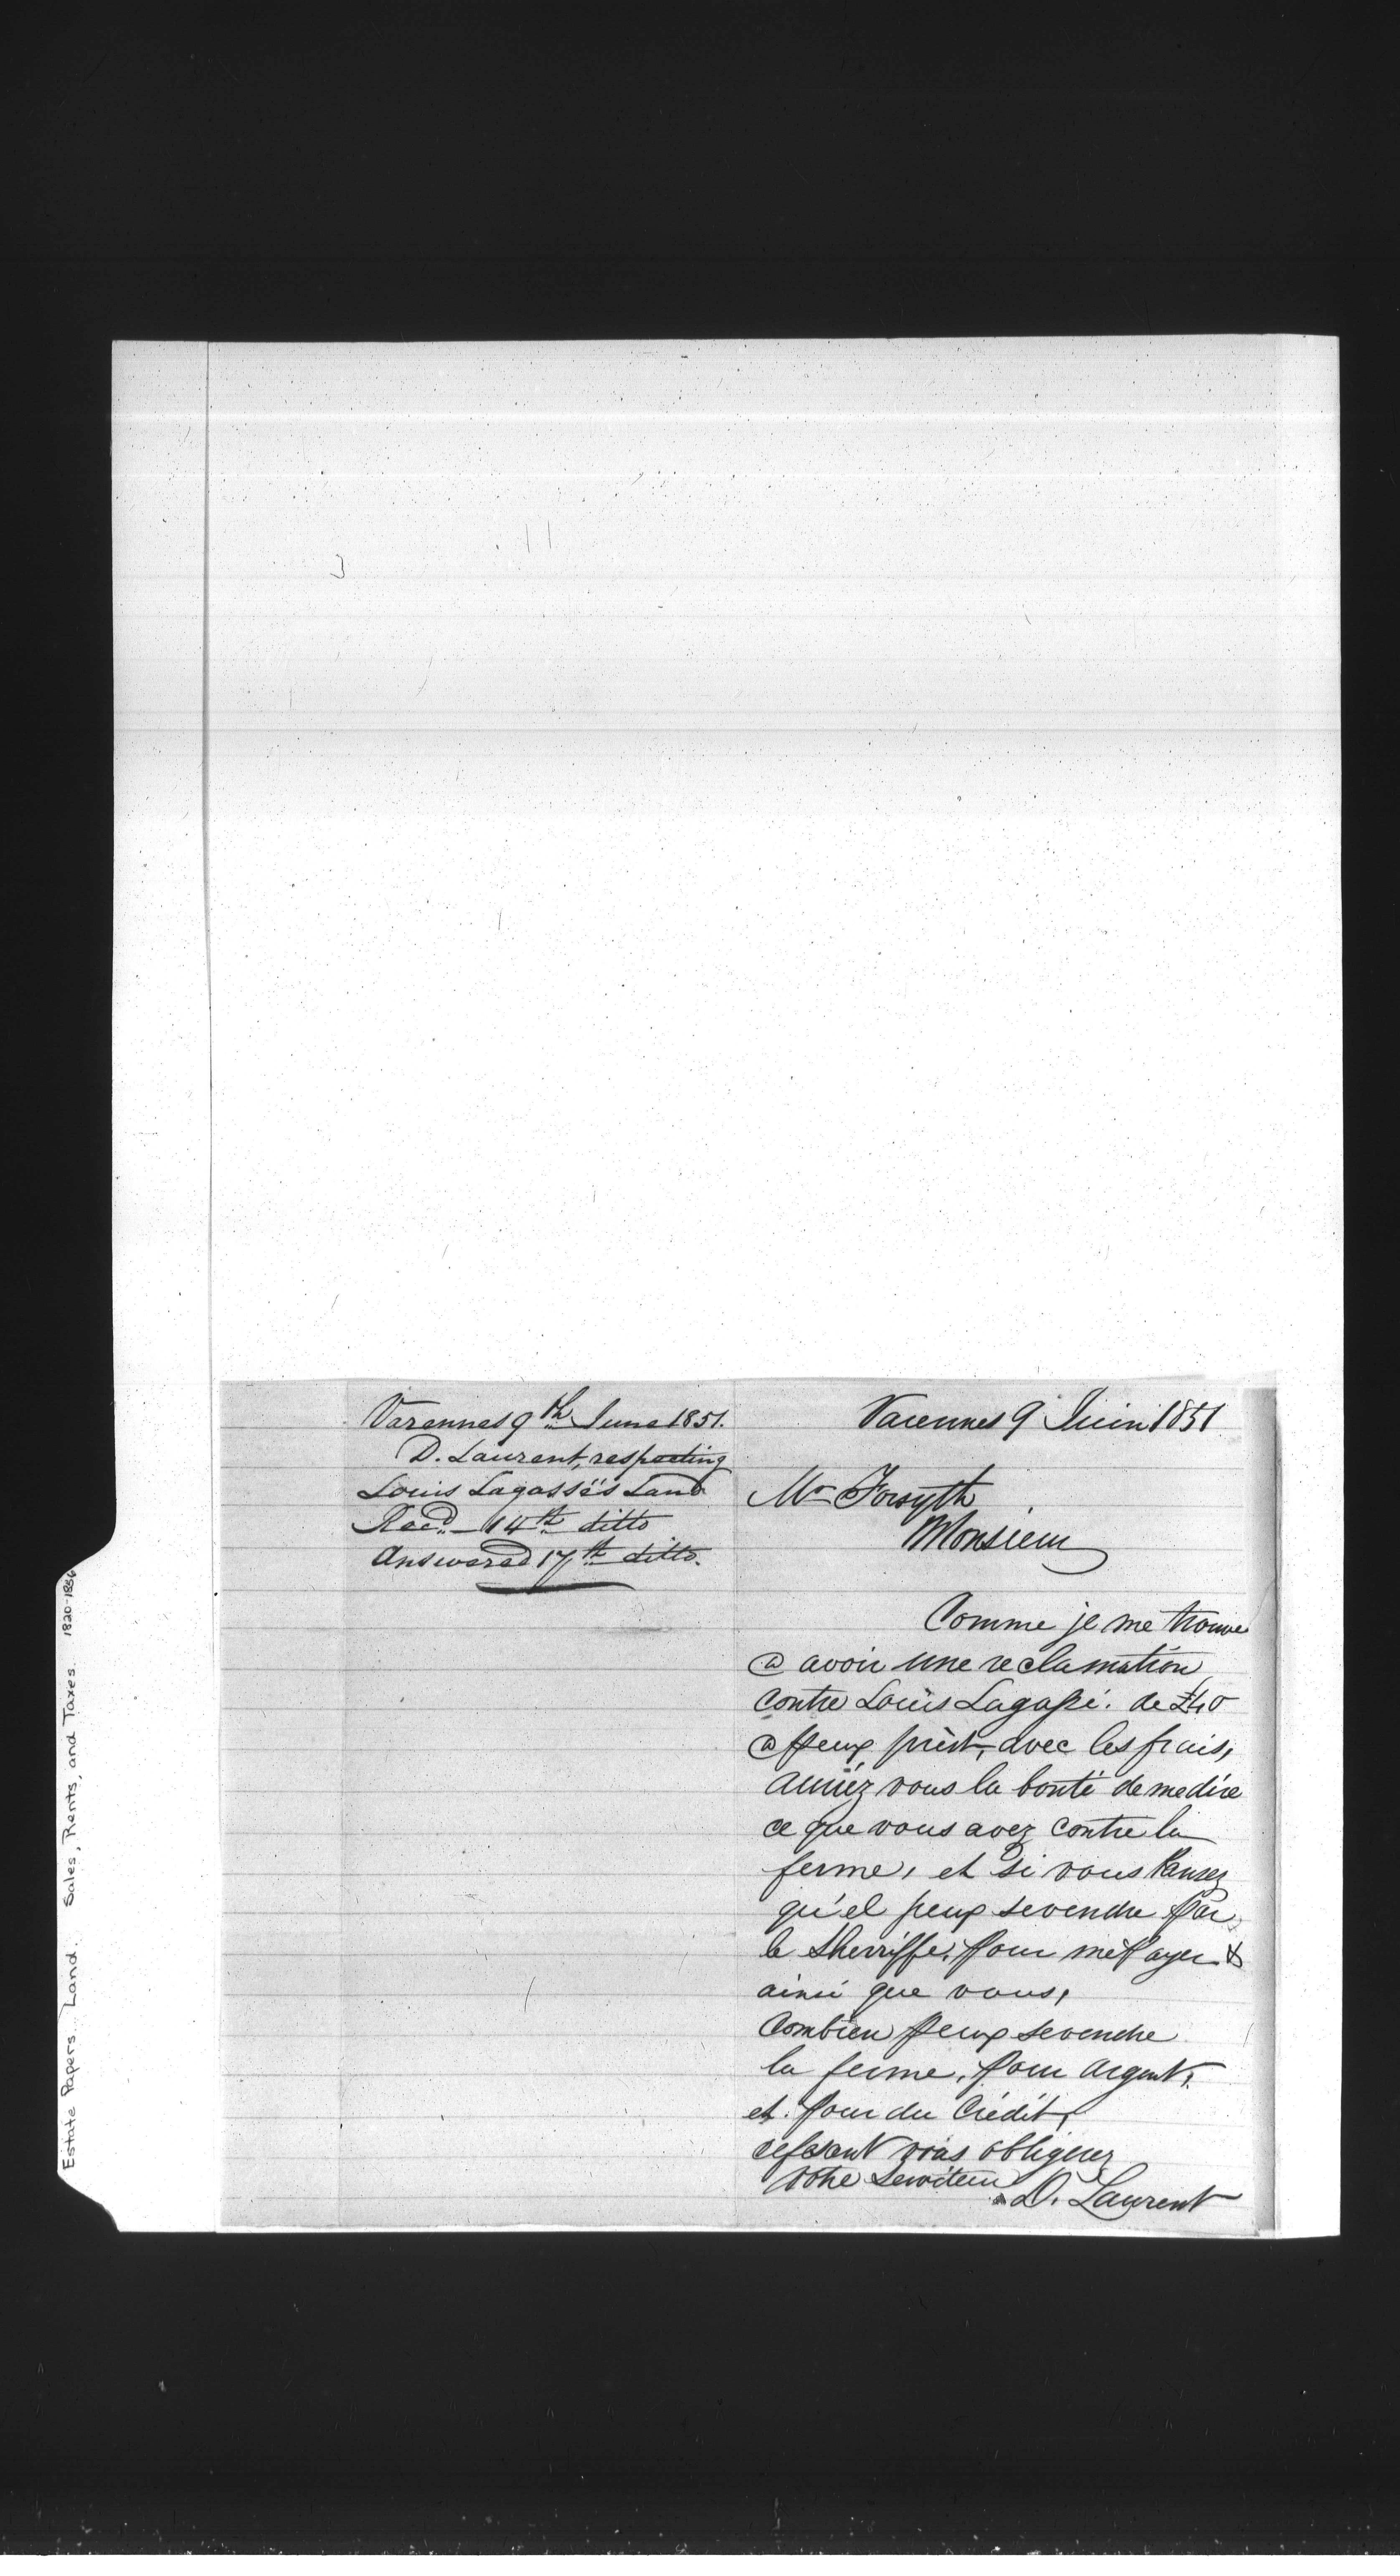 Estate Papers. Land. Sales, Rents, and Taxes. 1820-1856
Varennes 9th June 1851.
D. Laurent, respecting
Louis Lagassé's Land
Recd. 14th ditto
Answered 17th ditto.
Varennes 9 Juin 1851
Mr Forsyth
Monsieur
Comme je me trouve
a avoir une reclamation
contre Louis Lagassé. de £40
a peux prèst, avec les frais,
auriéz vous la bonté de me dire
ce que vous avez contre la
ferme, et si vous Pensez
qu'el peux se vendre par
le Sherriffe, pour me Payer &
ainsi que vous,
Combien peux se vendre
la ferme, pour argent,
et pour du Crédit,
vous obligerez
Votre Serviteur
D. Laurent